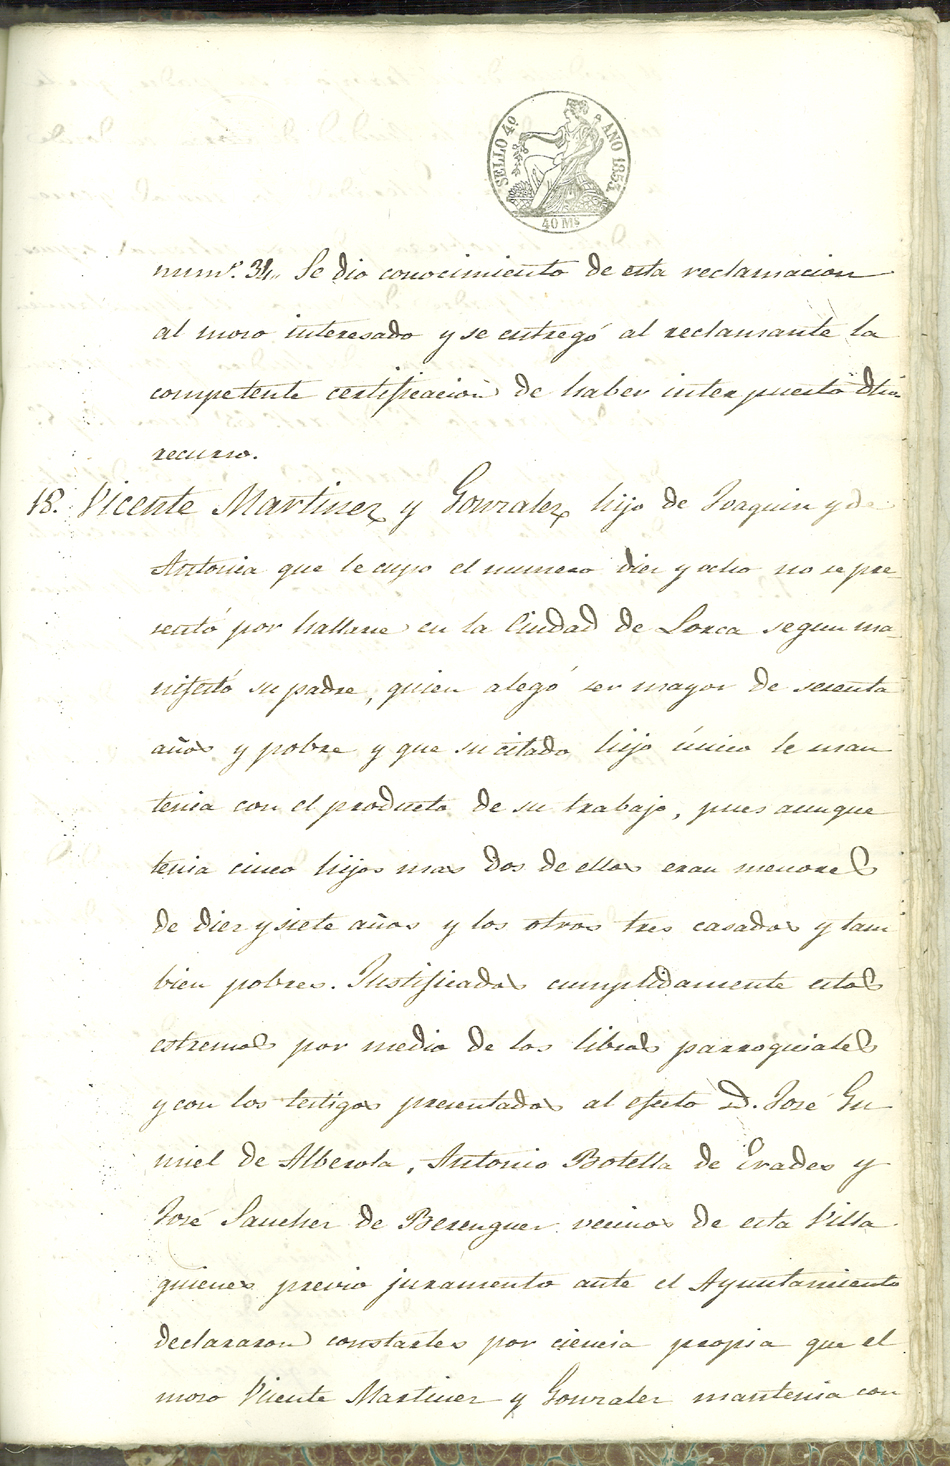 SELLO 4º AÑO 1853.
40 Ms
num.º 34. Se dio conocimiento de esta reclamacion
al moso interesado y se entregó al reclamante la
competente certificacion de haber interpuesto dho
recurso.
18. Vicente Martinez y Gonzalez hijo de Joaquin y de
Antonia que le cupo el numero diez y ocho no se pre-
sentó por hallarse en la Ciudad de Lorca segun ma-
nifestó su padre, quien alegó ser mayor de sesenta
años y pobre y que su citado hijo único le man
tenia con el producto de su trabajo, pues aunque
tenia cinco hijos mas dos de ellos eran menores
de diez y siete años y los otros tres casados y tam
bien pobres. Justificados cumplidamente estos
estremos por medio de los libros parroquiales
y con los testigos presentados al efecto D. José Gu
miel de Alberola, Antonio Botella de Erades y
José Sanchez de Berenguer vecinos de esta Villa
quienes previo juramento ante el Ayuntamiento
declararon constarles por ciencia propia que el
moso Vicente Martinez y Gonzalez mantenia con